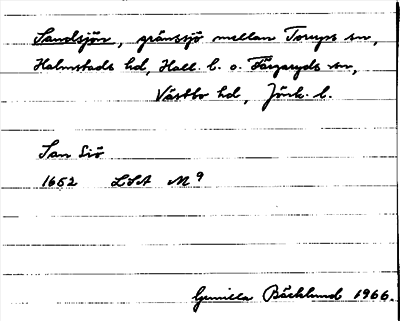 Sandsjön, gränssjö mellan Torups sn,
Halmstads hd, Hall. l. o. Färgaryds sn,
Västbo hd, Jönk. l.
San Siö
1652 LSA M 9
Gunilla Bäcklund 1966.